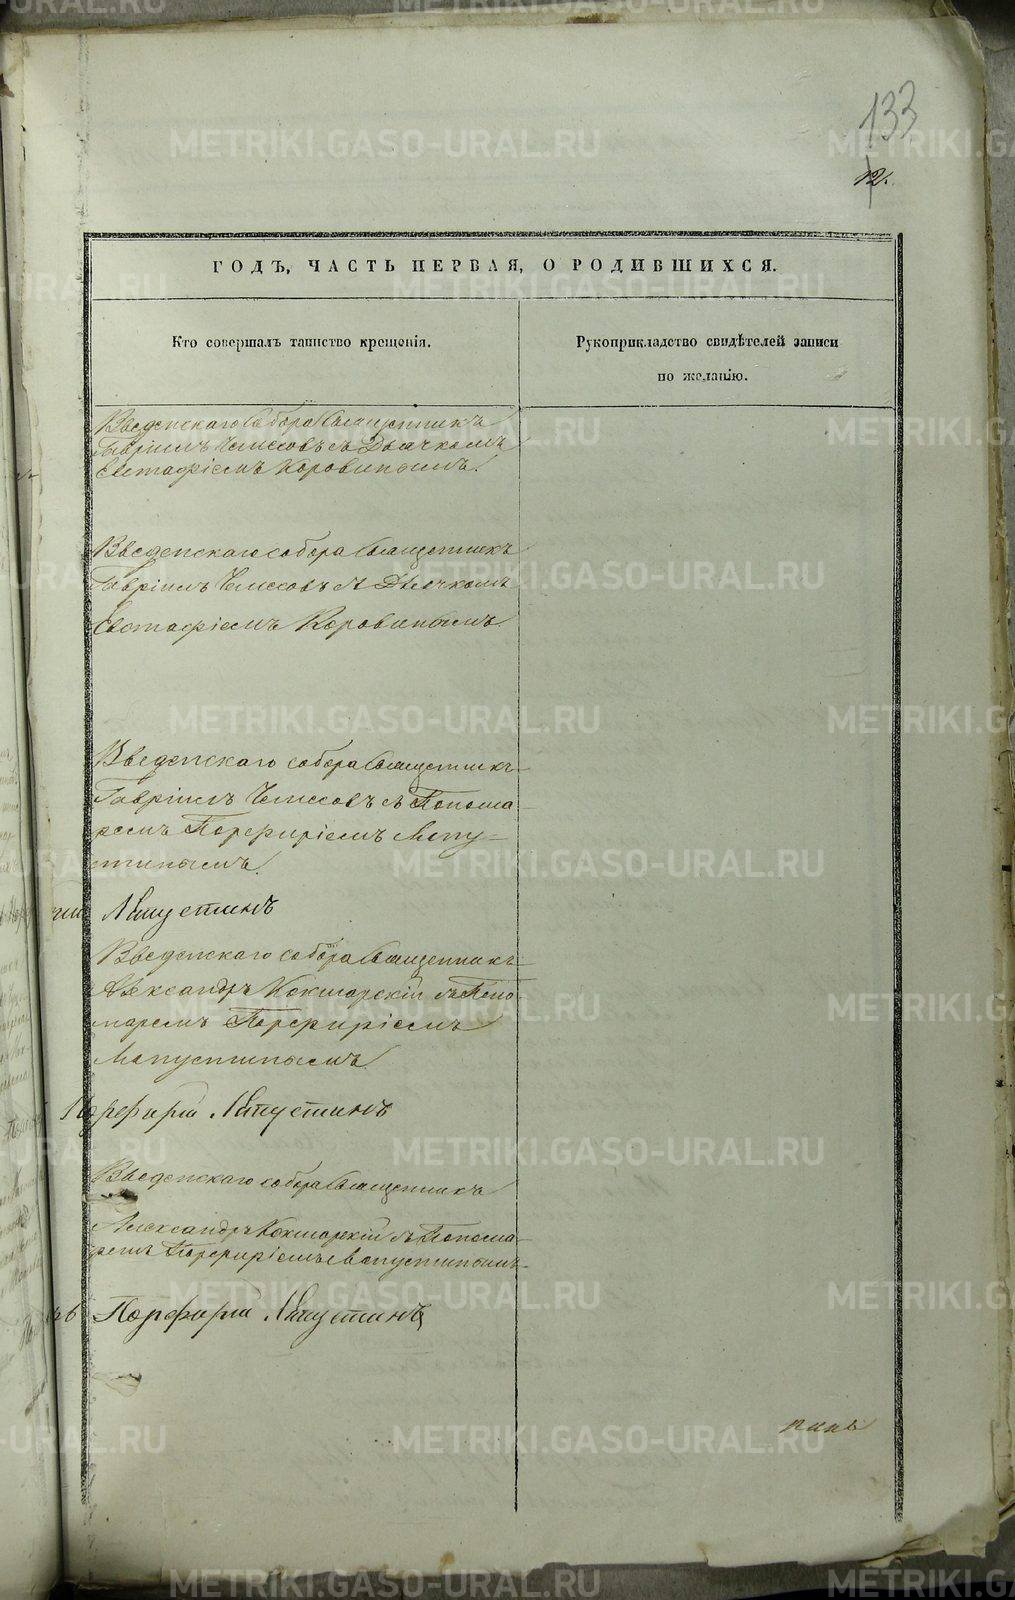 133
12.
ГОДЪ, ЧАСТЬ ПЕРВАЯ, О РОДИВШИХСЯ.
Кто совершалъ таинство крещенія.
Рукоприкладство свидѣтелей записи
по желанію.
Введенскаго Собора Священникъ
Гавріилъ Чемесовъ съ Дьячкомъ
Евстафіемъ Коровинымъ.
Введенскаго собора Священникъ
Гавріилъ Чемесовъ съ Дьячкомъ
Евстафіемъ Коровинымъ.
Введенскаго собора Священникъ
Гавріилъ Чемесовъ съ Понома-
ремъ Порфиріемъ Лапу-
стинымъ.
Лапустинъ
Введенскаго собора Священникъ
Александръ Кокшарскій съ Поно-
маремъ Порфиріемъ
Лапустинымъ.
Порфирій Лапустинъ
Введенскаго собора Священникъ
Александръ Кокшарскій съ Понома-
ремъ Порфиріемъ Лапустинымъ.
Порфирій Лапустинъ
METRIKI.GASO-URAL.RU